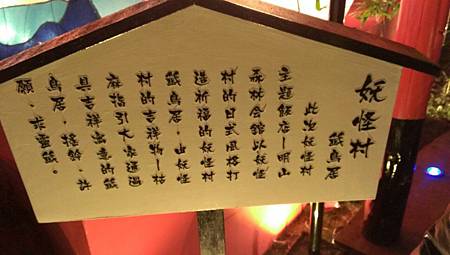 妖怪村
籤鳥居
此次妖怪村
主題飯店—明山
森林會館以妖怪
村的日式風格打
造祈福的妖怪村
籤鳥居，由妖怪
村的吉祥物—枯
麻指引大家通過
具吉祥寓意的籤
鳥居，搖鈴、許
願、求靈籤。